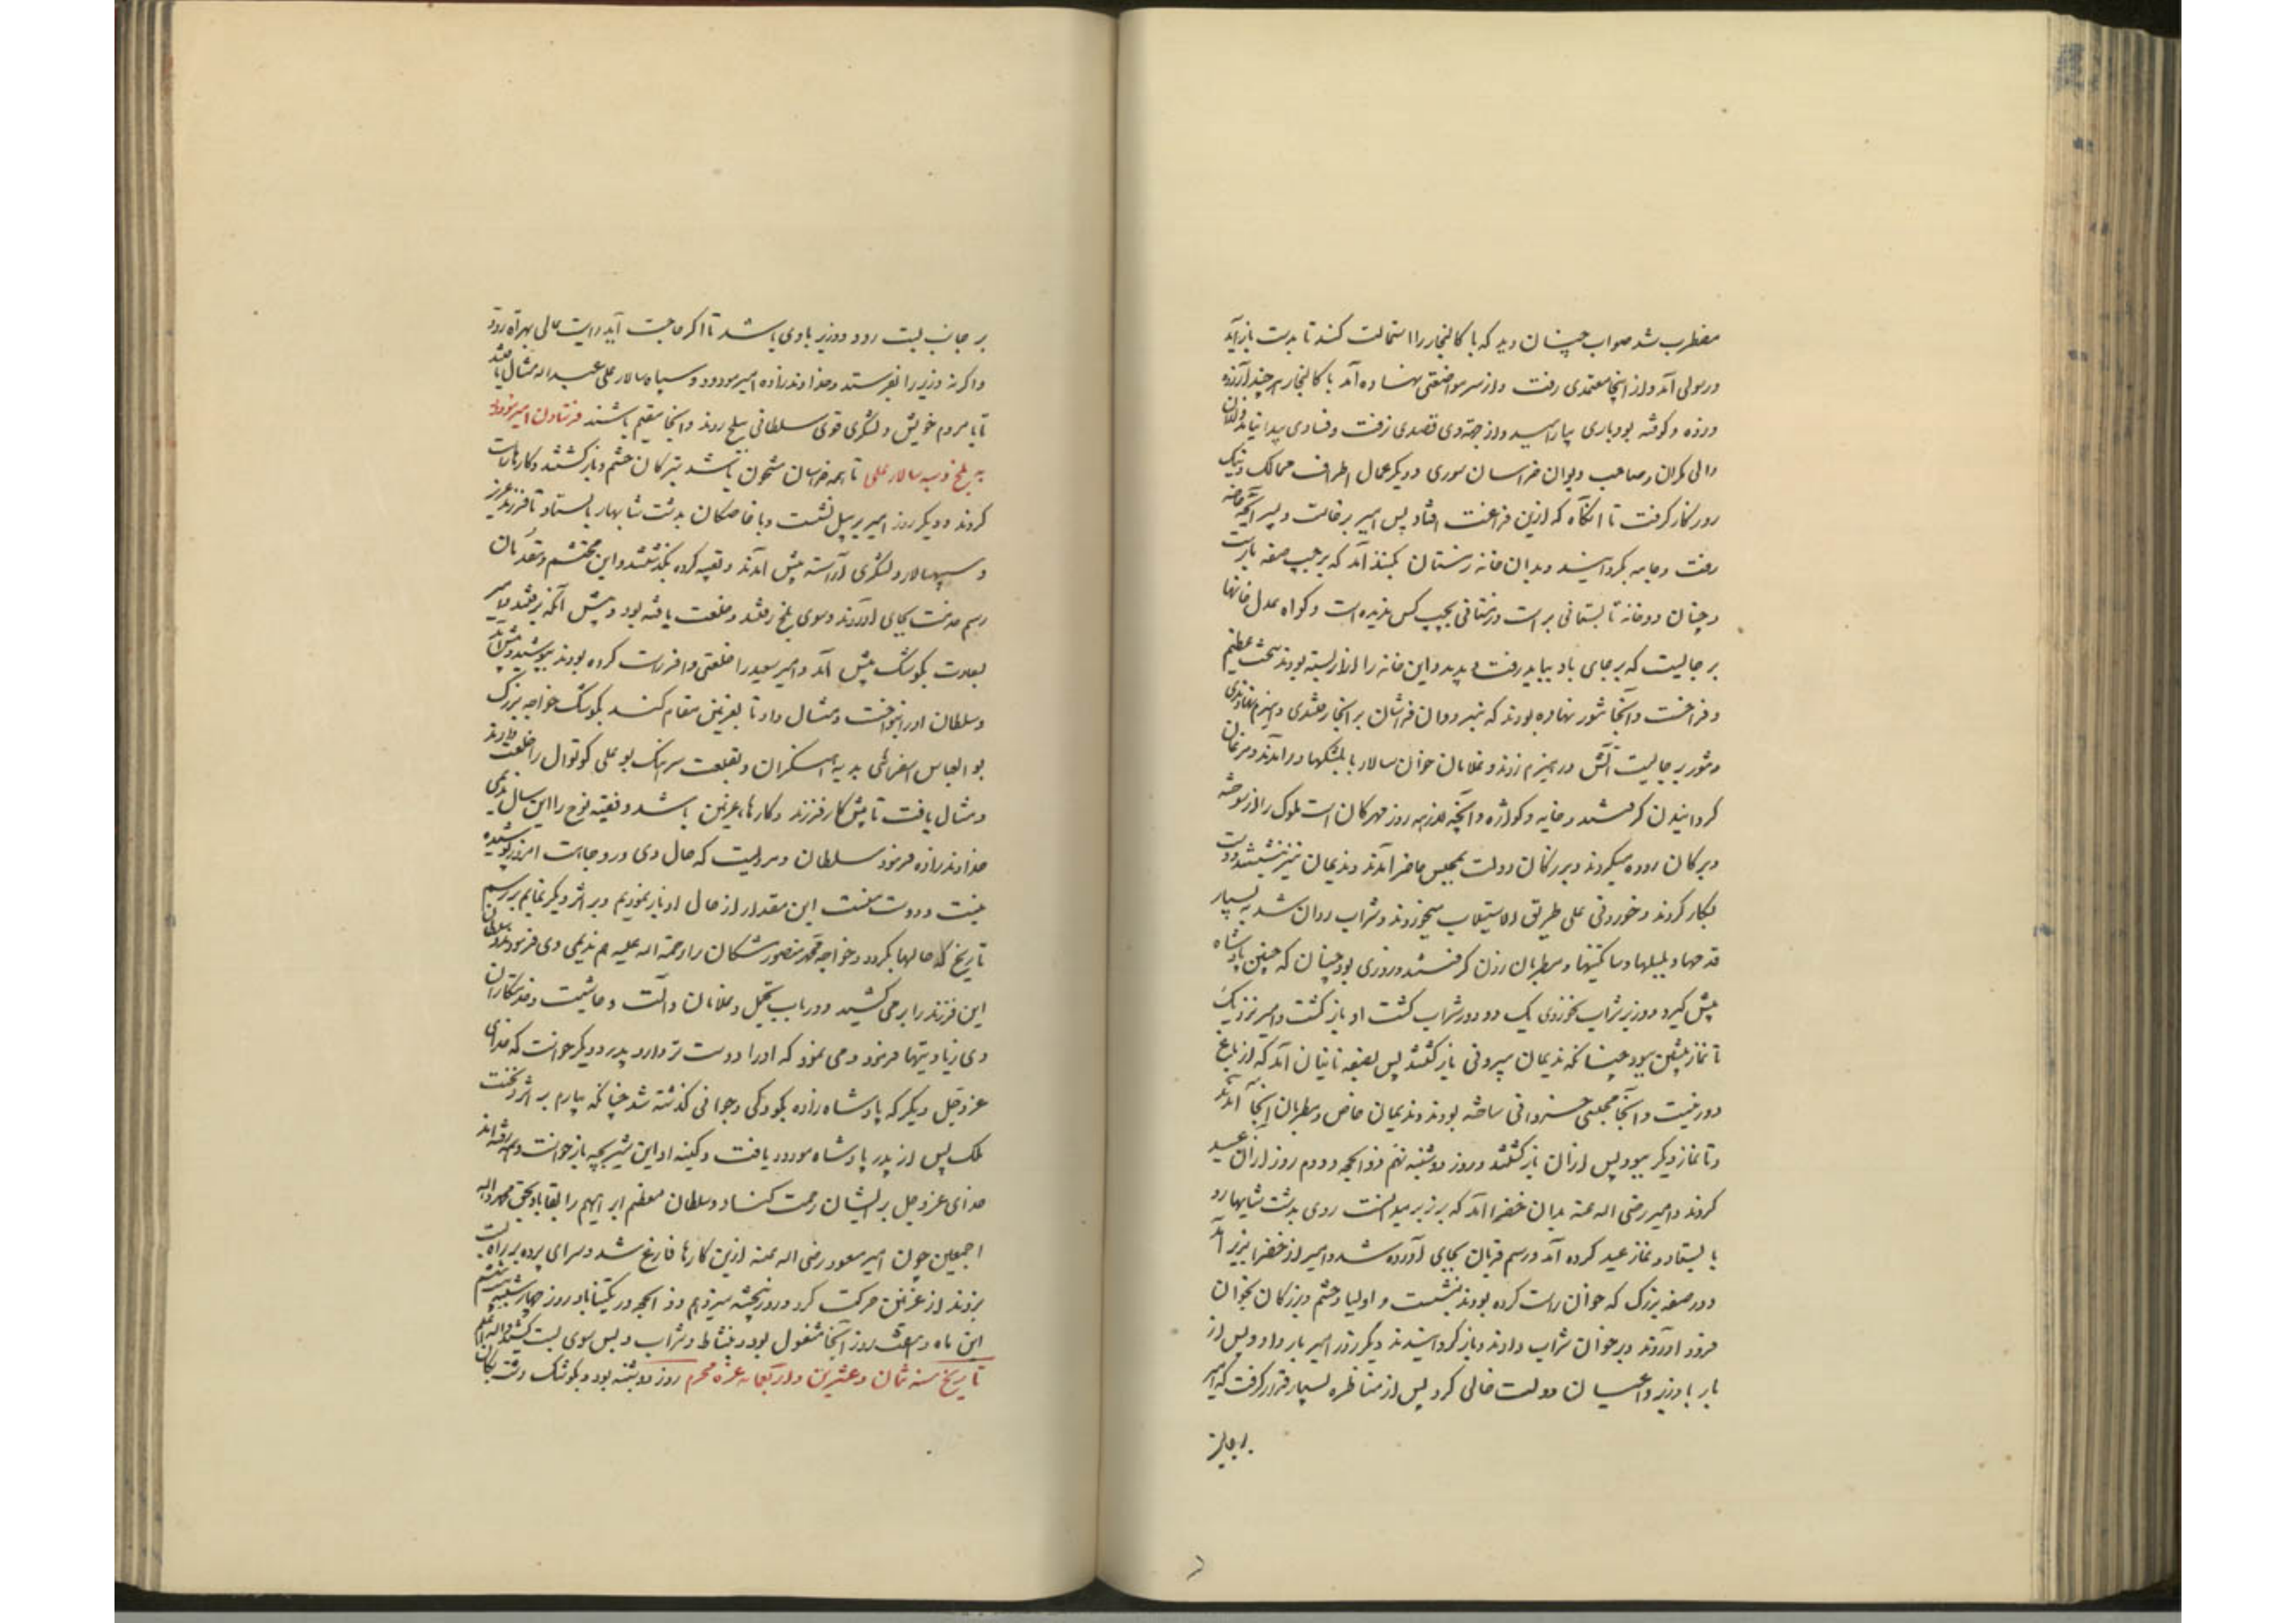 مضطرب شد صواب چنان دید که باکالنجار را استمالت کند تا بدست بازآید
و رسولی آمد و از اینجا معتمدی رفت و از سر مواضعتی نهاده آمد باکالنجار هرچند آزرده
و زده و کوفته بود باری بیارامید و از جهت وی قصدی نرفت و فسادی پیدا نیامد و از آن
والی مکران و صاحب دیوان خراسان سوری و دیگر عمال اطراف ممالک و نیک
روزگار گرفت تا آنگاه که ازین فراغت افتاد پس امیر برخاست و بسرایچه خاصه
رفت و جامه بگردانید و بدان خانه زمستان بگنبد آمد که بر چپ صفه بارست
و چنان دو خانه تابستانی براست و زمستانی بچپ کس ندیده است و گواه عدل خانها
بر جایست که بر جای باد بباید رفت و بدید و این خانه را آذین بسته بودند سخت عظیم
و فراخت و آنجا تنور نهاده بودند که بنردبان فراشان بر آنجا رفتندی و هیزم نهادندی
و تنور بر جایست آتش در هیزم زدند و غلامان خوان سالار با بلسکها درآمدند و مرغان
گردانیدن گرفتند و خایه و کواژه و آنچه لازمه روز مهرگان است ملوک را از سوخته
و برگان روده میکردند و بزرگان دولت بمجلس حاضر آمدند و ندیمان نیز بنشستند و دست
بکار کردند و خوردنی علی طریق الاستیلاب میخوردند و شراب روان شد به بسیار
قدحها و بلبلها و ساتگینها و مطربان زدن گرفتند و روزی بود چنان که چنین پادشاه
پیش گیرد و وزیر شراب نخوردی یک دو دور شراب گشت او بازگشت و امیر نزدیک
تا نماز پیشین ببود چنانکه ندیمان بیرونی بازگشتند پس بصفه نائبان آمد که از باغ
دور نیست و آنجا مجلسی خسروانی ساخته بودند و ندیمان خاص و مطربان آنجا آمدند
و تا نماز دیگر ببود پس از آن بازگشتند و روز دوشنبه نهم ذوالحجه و دوم روز از آن عید
کردند و امیر رضی الله عنه بدان خضرا آمد که بر زبر میدانست روی بدشت شابهار و
بایستاد و نماز عید کرده آمد و رسم قربان بجای آورده شد و امیر از خضرا بزیر آمد
و در صفه بزرگ که خوان راست کرده بودند بنشست و اولیا و حشم و بزرگان بخوان
فرود آوردند و بر خوان شراب دادند و بازگردانیدند دیگر روز امیر بار داد و پس از
بار با وزیر و اعیان دولت خالی کرد پس از مناظره بسیار قرار گرفت که امیر
بر جانب
بر جانب بست رود و وزیر با وی باشد تا اگر حاجت آید رایت عالی بهراة رود
و اگر نه وزیر را بفرستد و خداوندزاده امیر مودود و سپاه سالار علی عبدالله مثال یافتند
تا با مردم خویش و لشکری قوی سلطانی ببلخ روند و آنجا مقیم باشند فرستادن امیر مودود
به بلخ و سپه سالار علی تا همه خراسان مشحون باشد بترکان حشم و بازگشتند و کارها راست
کردند و دیگر روز امیر بر پیل نشست و با خاصگان بدشت شابهار بایستاد تا فرزند عزیز
و سپهسالار و لشکری آراسته پیش آمدند و تعبیه کرده بگذشتند و این محتشم و مقدمان
رسم خدمت بجای آوردند و سوی بلخ رفتند و خلعت یافته بود و پیش آنکه برفتند و امیر
بعادت بکوشک پیش آمد و امیر سعید را خلعتی وافر راست کرده بودند بپوشید و پیش آمد
و سلطان او را بنواخت و مثال داد تا بغزنین مقام کند بکوشک خواجه بزرگ
بوالعباس اسفراینی بدیه آهنگران و بقلعت سرهنگ بوعلی کوتوال را خلعت دادند
و مثال یافت تا پیش کار فرزند و کارها غزنین باشد و فقیه نوح را این سال ندیمی
خداوندزاده فرمود سلطان و مردیست که حال وی و وجاهت امروز پوشیده
نیست و دوست منست این مقدار از حال او باز نمودیم و بر اثر دیگر نمایم بر رسم
تاریخ که حالها بگردد و خواجه محمد منصور مشکان را رحمة الله علیه هم ندیمی وی فرمود و سلطان
این فرزند را برمی کشید و در باب تجمل و غلامان و آلت و حاشیت و خدمتکاران
وی زیادتیها فرمود و می نمود که او را دوست تر دارد پدر و دیگر خواست که خدای
عزوجل دیگر که پادشاه زاده بکودکی و جوانی گذشته شد چنانکه بیارم بر اثر و تخت
ملک پس از پدر پادشاه مودود یافت و کینه او این شیربچه باز خواست و همه رفته اند
خدای عزوجل بر ایشان رحمت کناد و سلطان معظم ابراهیم را بقا باد بحق محمد و اله
اجمعین چون امیر مسعود رضی الله عنه ازین کارها فارغ شد و سرای پرده بر راه بست
بزدند از غزنین حرکت کرد و روز پنجشنبه سیزدهم ذوالحجه در تکیناباد روز چهارشنبه بیستم
این ماه و هفت روز آنجا مشغول بود بنشاط و شراب و پس سوی بست کشید و الله اعلم
تاریخ سنه ثمان و عشرین و اربعمائه غره محرم روز دوشنبه بود و بکوشک دشت لکان